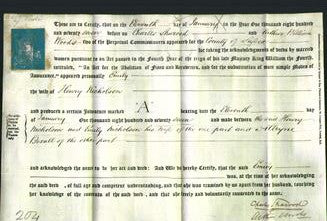 These are to Certify, that on the Eleventh day of January in the Year One thousand eight hundred
and seventy seven before Us Charles Sharood and Arthur William
Woods Two of the Perpetual Commissioners appointed for the County of
for taking the acknowledgments of deeds by married
women pursuant to an Act passed in the Fourth Year of the reign of his late Majesty King William the Fourth,
intituled, "An Act for the Abolition of Fines and Recoveries, and for the substitution of more simple Modes of
Assurance," appeared personally Emily
the wife of Henry Nicholson
and produces a certain Indenture marked "A" bearing date the Eleventh
day of January One thousand eight hundred and seventy seven and made between the said Henry
Nicholson and Emily Nicholson his wife of the one part and
of the other part
and acknowledged the same to be her act and deed: And We do hereby Certify, that the said Emily
was at the time of her acknowledging
the said deed, of full age and competent understanding, and that she was examined by us apart from her husband, touching
her knowledge of the contents of the said deed, and that she freely and voluntarily consented to the same.
Charles Sharood
204